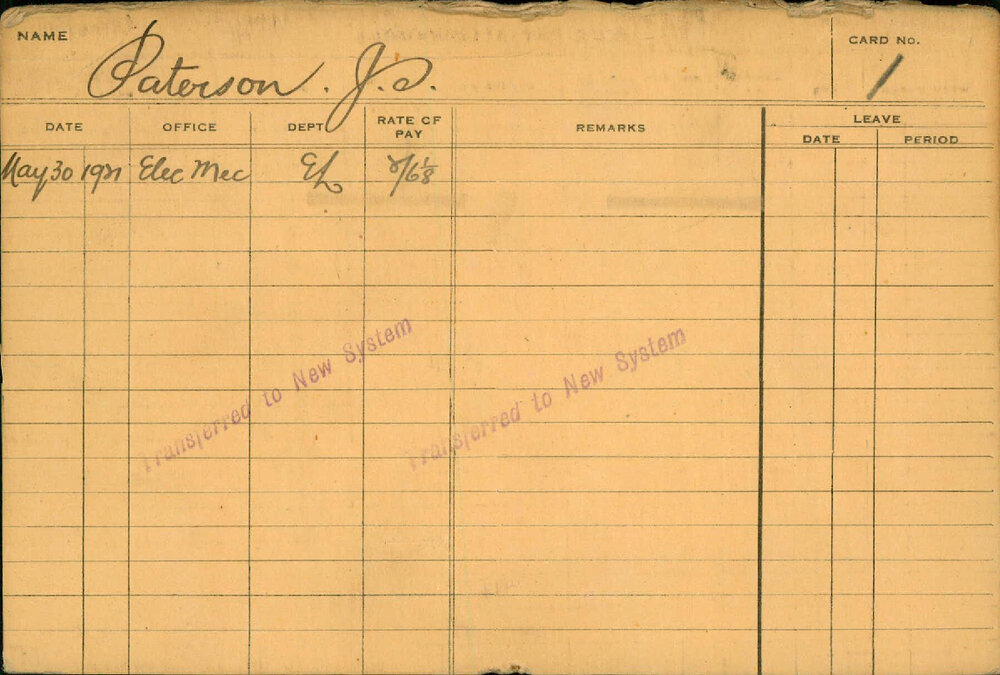 NAME Paterson. J.S. CARD NO. 1
DATE OFFICE DEPT RATE OF PAY REMARKS LEAVE
DATE PERIOD
May 30 1921 Elec Mec EL
Transferred to New System
Transferred to New System